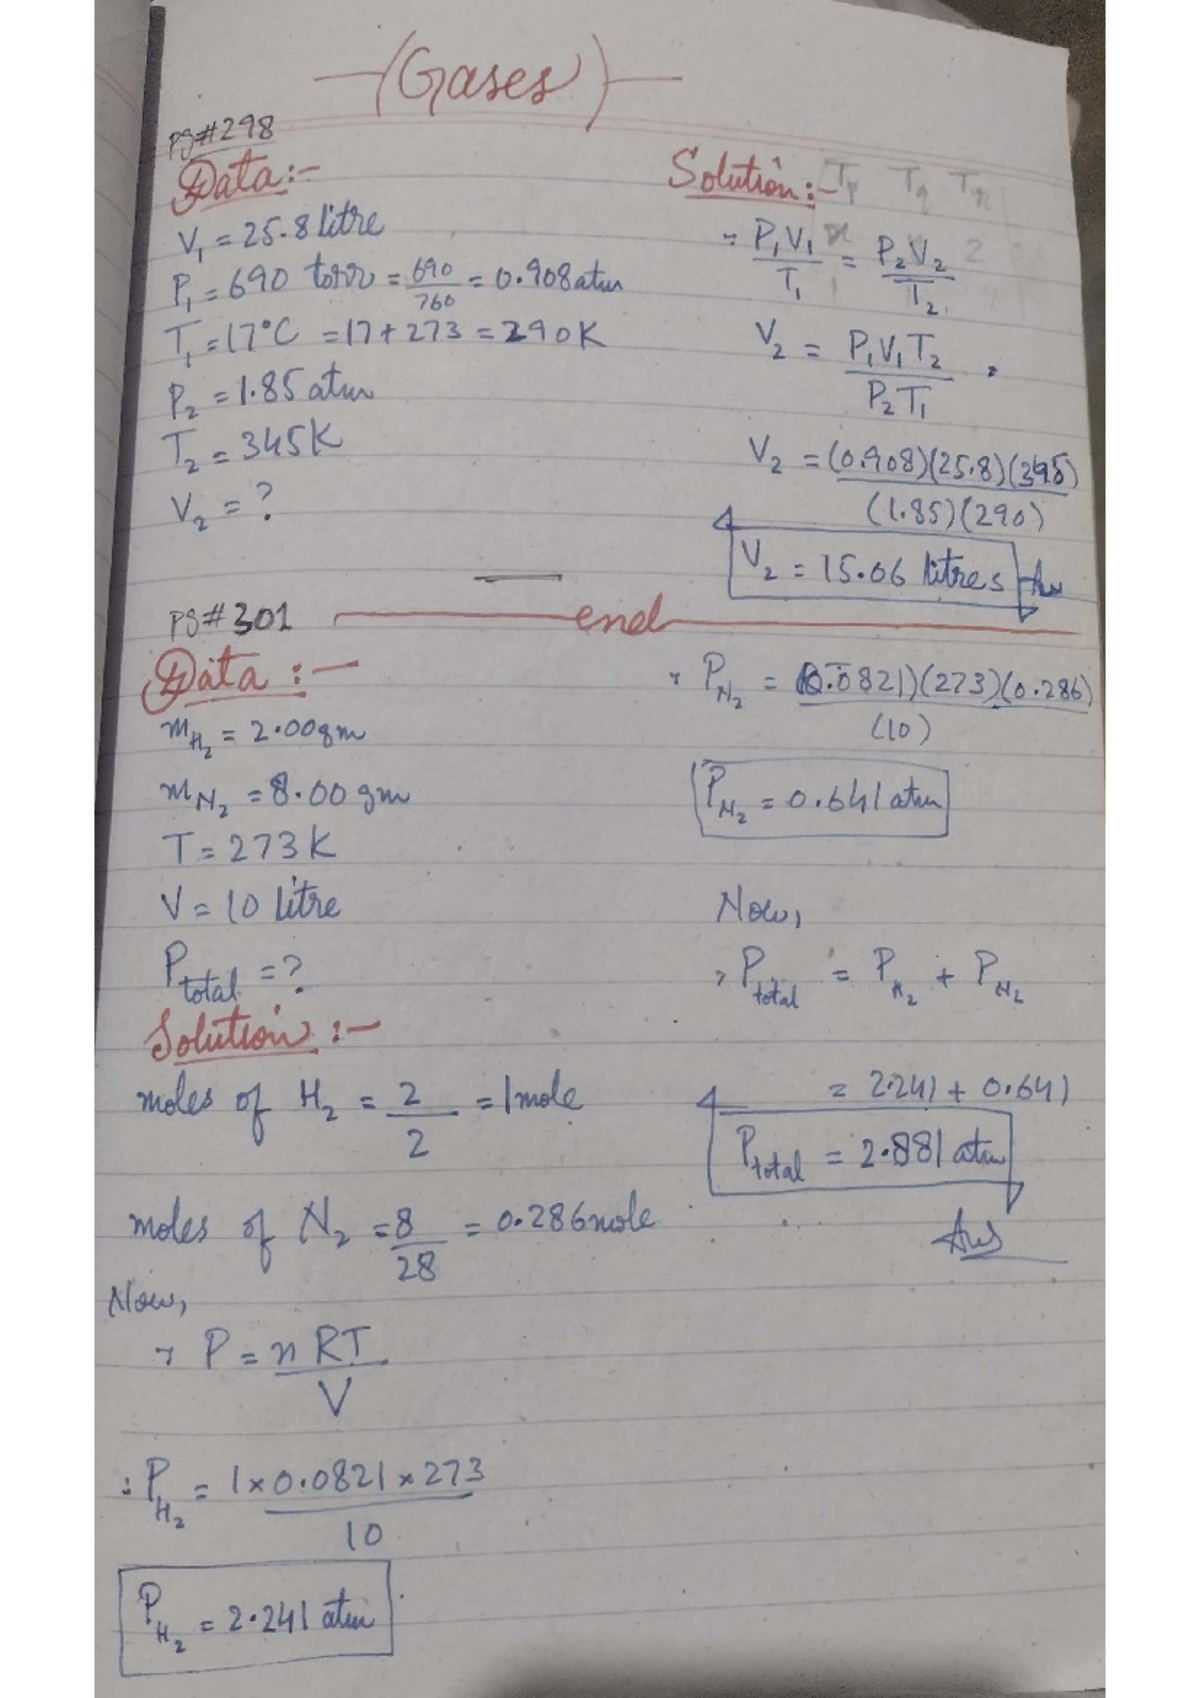 (Gases)
Pg#298
Data:-
V₁ = 25.8 litre
P₁ = 690 torr = 690/760 = 0.908 atm
T₁ = 17°C = 17+273 = 290K
P₂ = 1.85 atm
T₂ = 345K
V₂ = ?
Solution:-
P₁V₁/T₁ = P₂V₂/T₂
V₂ = P₁V₁T₂/P₂T₁
V₂ = (0.908)(25.8)(345)/(1.85)(290)
V₂ = 15.06 litres Ans
end
Pg#301
Data:-
mH₂ = 2.00gm
mN₂ = 8.00 gm
T = 273K
V = 10 litre
Ptotal = ?
Solution:-
moles of H₂ = 2/2 = 1mole
moles of N₂ = 8/28 = 0.286mole
Now,
P = nRT/V
∴ PH₂ = 1×0.0821×273/10
PH₂ = 2.241 atm
∴ PN₂ = (0.0821)(273)(0.286)/(10)
PN₂ = 0.641 atm
Now,
Ptotal = PH₂ + PN₂
= 2.241 + 0.641
Ptotal = 2.881 atm
Ans